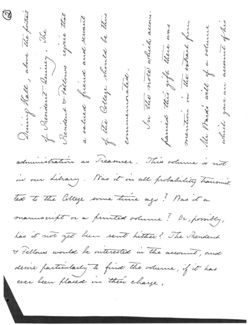 Dining Hall, above the portrait
of President Quincy. The
President & Fellows rejoice that
a valued friend and servant
of the College should be thus
commemorated.
In the note which accom-
panied this gift there was
mention in the extract from
Mr Ward's will of a volume
which gave an account of his
administration as Treasurer. This volume is not
in our Library. Was it in all probability transmit-
ted to the College some time ago? Was it a
manuscript or a printed volume? Or, possibly,
has it not yet been sent hither? The President
& Fellows would be interested in the account, and
desire particularly to find the volume, if it has
ever been placed in their charge.